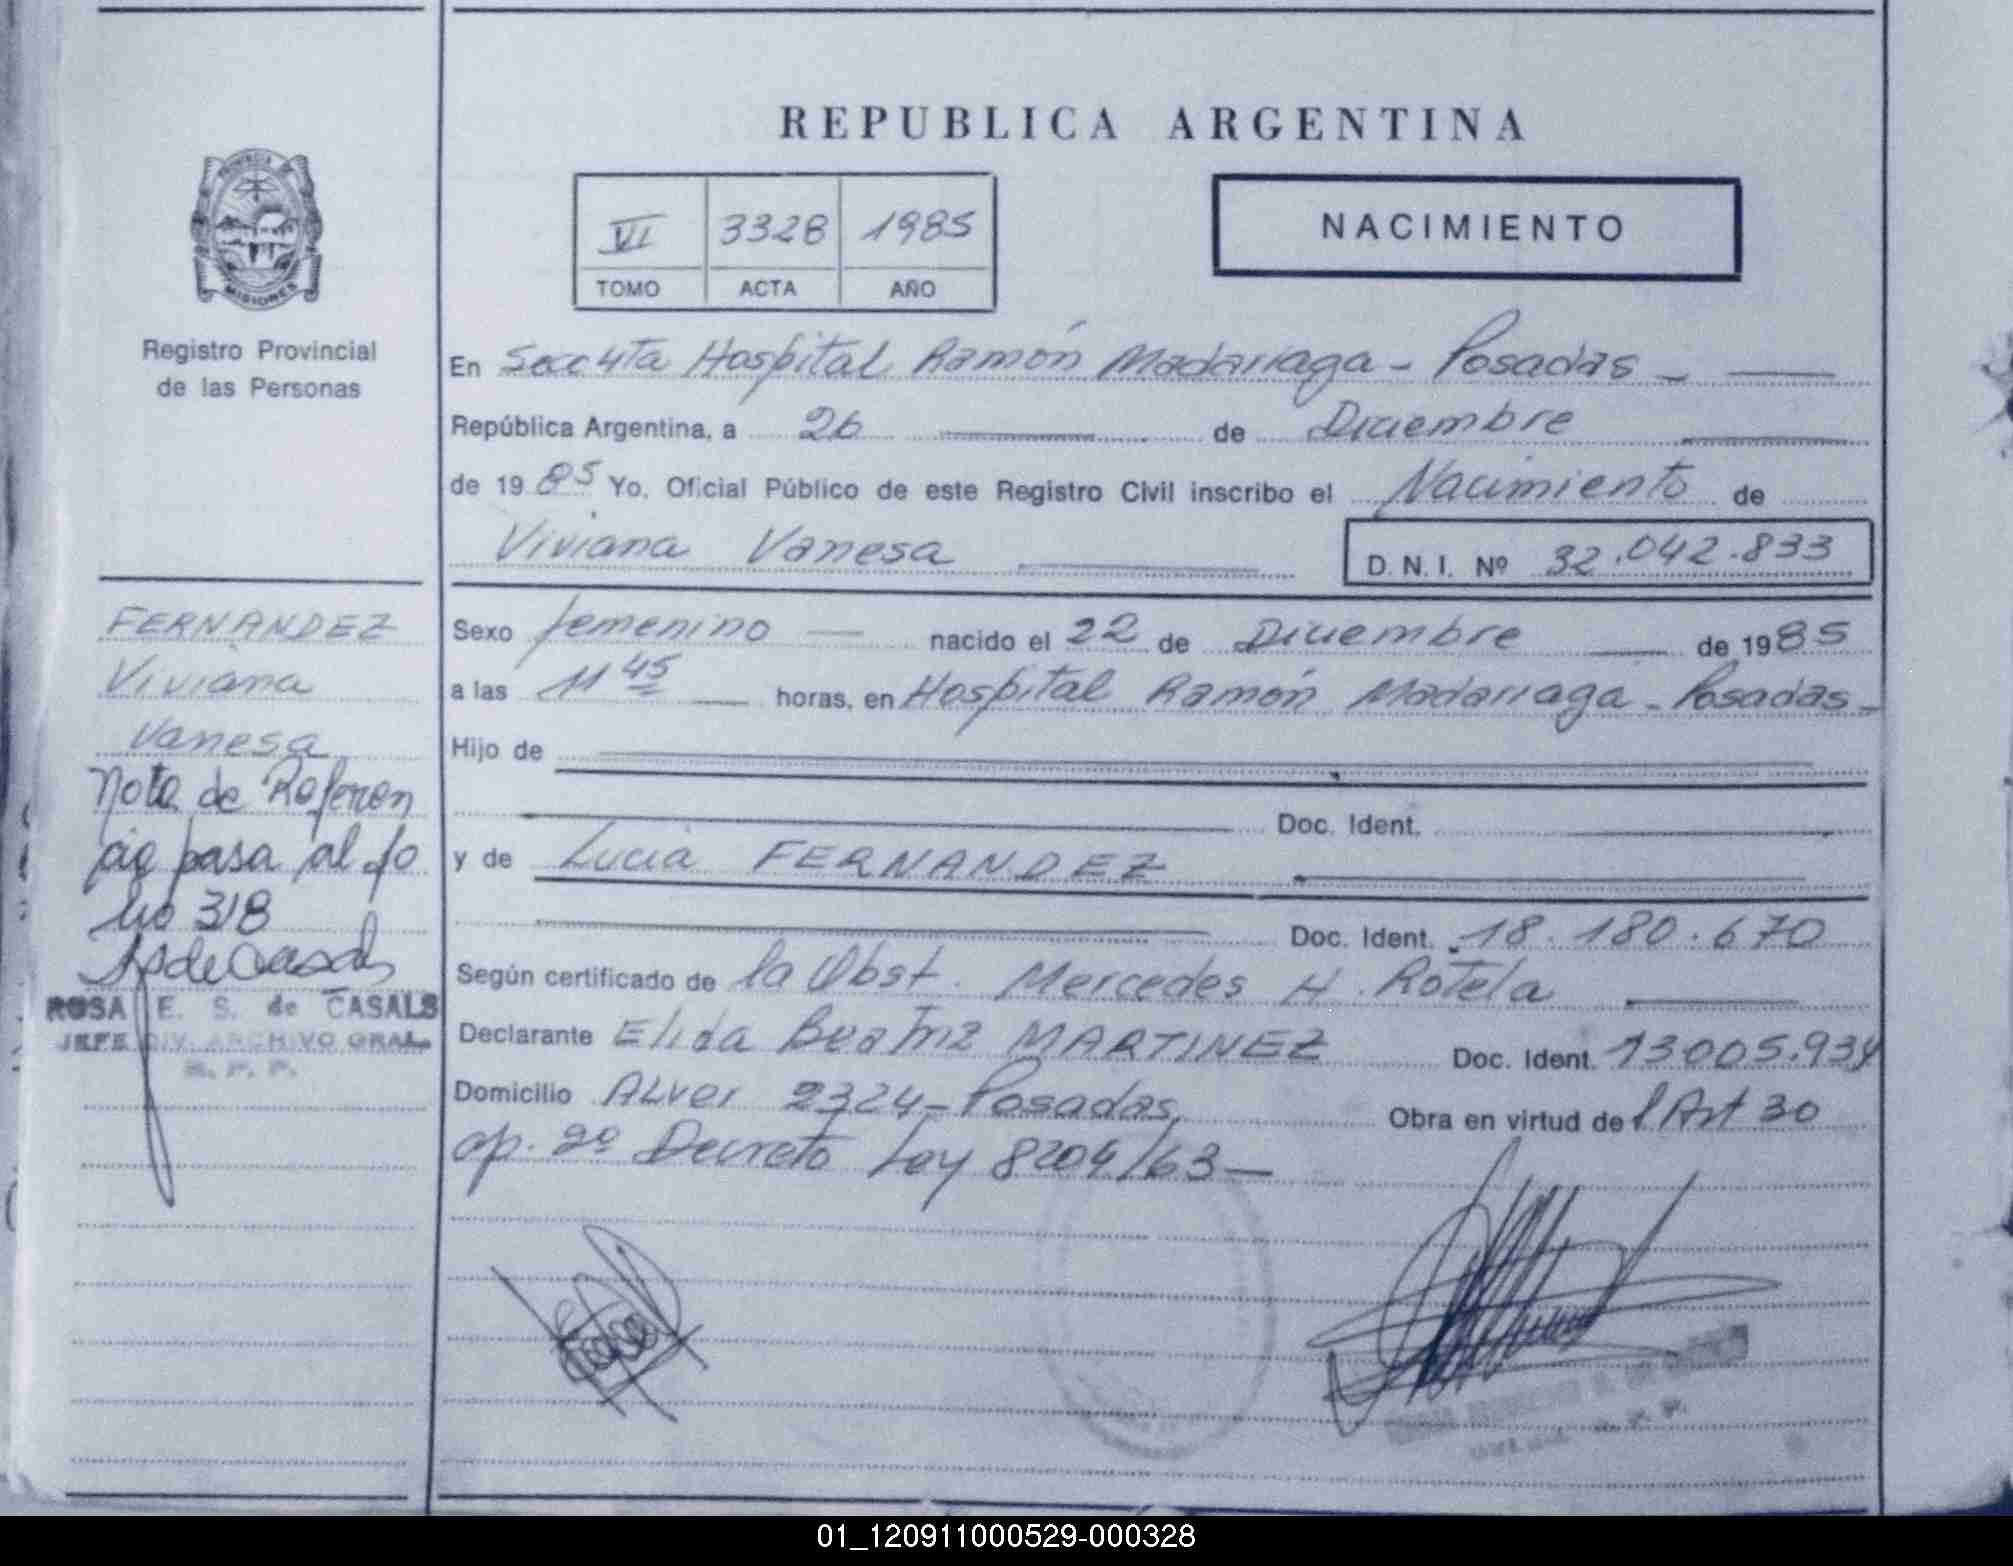 REPUBLICA ARGENTINA
PROVINCIA
MISIONES
Registro Provincial
de las Personas
VI 3328 1985
TOMO ACTA AÑO
NACIMIENTO
En Secc 4ta Hospital Ramón Madariaga - Posadas -
República Argentina, a 26 de Diciembre
de 1985 Yo, Oficial Público de este Registro Civil inscribo el Nacimiento de
Viviana Vanesa
D. N. I. Nº 32.042.833
FERNANDEZ
Viviana
Vanesa
Nota de Referen
cia pasa al fo
lio 318
ROSA E. S. de CASALS
JEFE DIV. ARCHIVO GRAL.
R. P. P.
Sexo femenino nacido el 22 de Diciembre de 1985
a las 11 45 horas, en Hospital Ramón Madariaga - Posadas -
Hijo de
Doc. Ident.
y de Lucia FERNANDEZ
Doc. Ident. 18.180.670
Según certificado de la Obst. Mercedes H. Rotela
Declarante Elida Beatriz MARTINEZ Doc. Ident. 13005.934
Domicilio ALver 2324 - Posadas, Obra en virtud del Art 30
ap. 2º Decreto Ley 8204/63 -
R. P. P.
01_120911000529-000328